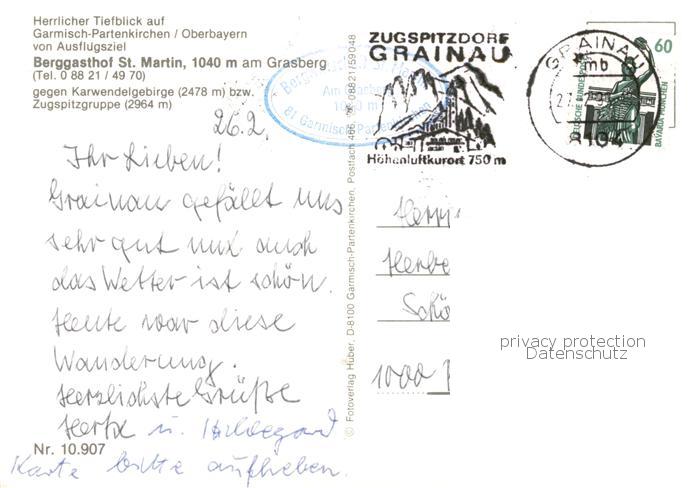 Herrlicher Tiefblick auf
Garmisch-Partenkirchen / Oberbayern
von Ausflugsziel
Berggasthof St. Martin, 1040 m am Grasberg
(Tel. 0 88 21 / 49 70)
gegen Karwendelgebirge (2478 m) bzw.
Zugspitzgruppe (2964 m)
26.2.
Ihr Lieben!
Grainau gefällt uns
sehr gut und auch
das Wetter ist schön.
Heute war diese
Wanderung.
Herzlichste Grüße
u. Hildegard
Nr. 10.907
Karte bitte aufheben.
© Fotoverlag Huber, D-8100 Garmisch-Partenkirchen, Postfach 466, 08821/59048
Berggasthof St. Martin
Am Grasberg
81 Garmisch-Partenkirchen
ZUGSPITZDORF
GRAINAU
Höhenluftkurort 750 m
GRAINAU
mb
8104
60
DEUTSCHE BUNDESPOST
BAVARIA MÜNCHEN
Herrn
Schö
1000
privacy protection
Datenschutz